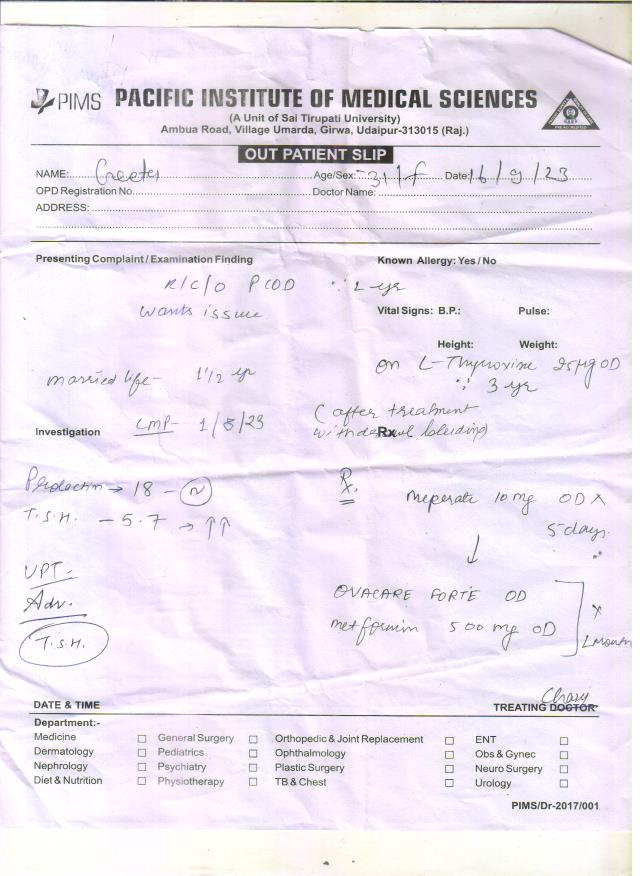 PIMS PACIFIC INSTITUTE OF MEDICAL SCIENCES
(A Unit of Sai Tirupati University)
Ambua Road, Village Umarda, Girwa, Udaipur-313015 (Raj.)
OUT PATIENT SLIP
NAME: Geeta Age/Sex: 31/f Date: 16/9/23
OPD Registration No. Doctor Name:
ADDRESS:
Presenting Complaint / Examination Finding Known Allergy: Yes / No
K/C/O PCOD ∵ 2 yr
wants issue
Vital Signs: B.P.: Pulse:
Height: Weight:
on L-Thyroxine 25µg OD
∵ 3 yr
married life- 1 1/2 yr
LMP- 1/8/23 (after treatment
Investigation withdrawal bleeding)
Rx
Prolactin → 18 - N
T.S.H. - 5.7 → ↑↑
Rx. meperate 10 mg OD X
5 days.
↓
UPT-
Adv.
T.S.H.
OVACARE FORTE OD
metformin 500 mg OD
X 1 month
DATE & TIME TREATING DOCTOR
Department:-
Medicine General Surgery Orthopedic & Joint Replacement ENT
Dermatology Pediatrics Ophthalmology Obs & Gynec
Nephrology Psychiatry Plastic Surgery Neuro Surgery
Diet & Nutrition Physiotherapy TB & Chest Urology
PIMS/Dr-2017/001